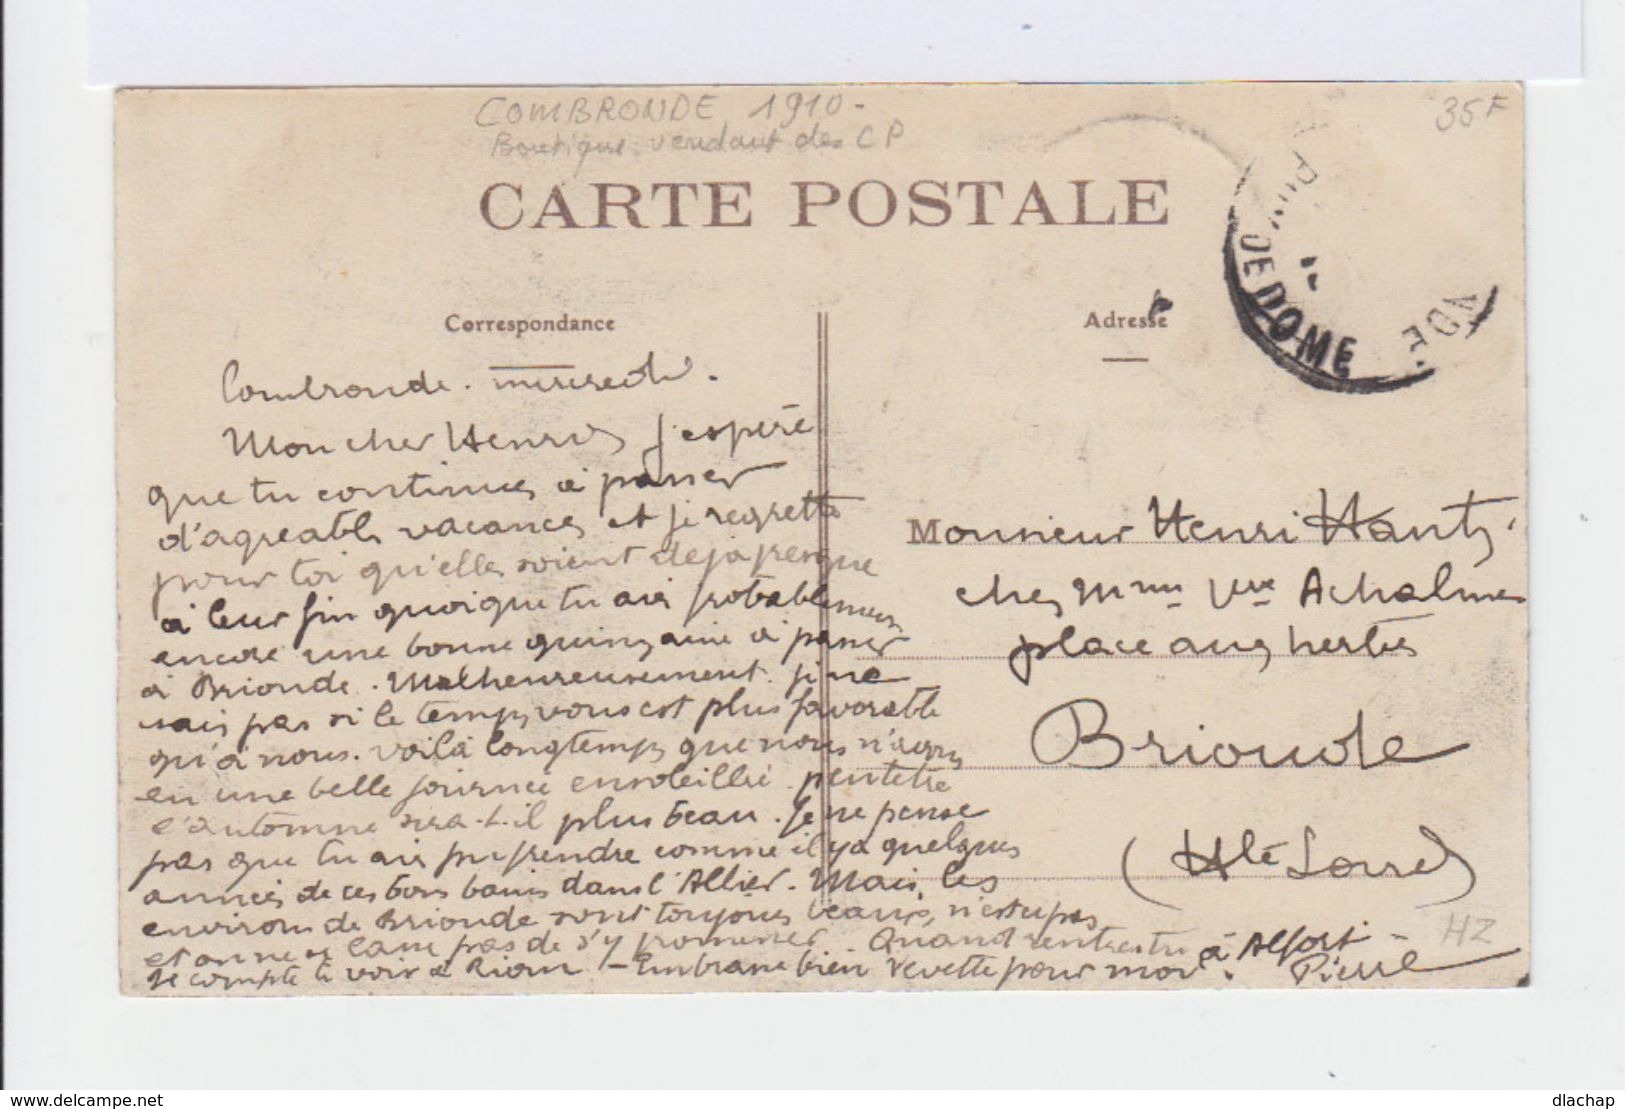 COMBRONDE 1910-
Boutique vendant des CP
35F
CARTE POSTALE
Correspondance
Adresse
DE DOME
Combronde. mercredi.
Mon cher Henri j'espère
que tu continues à passer
d'agreables vacances et je regrette
pour toi qu'elles soient deja presque
à leur fin quoique tu ais probablement
encore une bonne quinzaine à passer
à Brioude. Malheureusement je ne
sais pas si le temps vous est plus favorable
qu'à nous. Voilà longtemps que nous n'avons
eu une belle journée ensoleillée peut etre
l'automne sera-t-il plus beau. Je ne pense
pas que tu ais pu prendre comme il y a quelques
années de ces bons bains dans l'Allier. Mais les
environs de Brioude sont toujours beaux, n'est ce pas
et on ne se lasse pas de s'y promener. Quand rentres tu à Alfort -
Je compte te voir à Riom - Embrasse bien Yevette pour moi. Pierre
Monsieur Henri
chez Mme Vve Achalme
place aux herbes
Brioude
(Hte Loire)
HZ
www.delcampe.net
dlachap